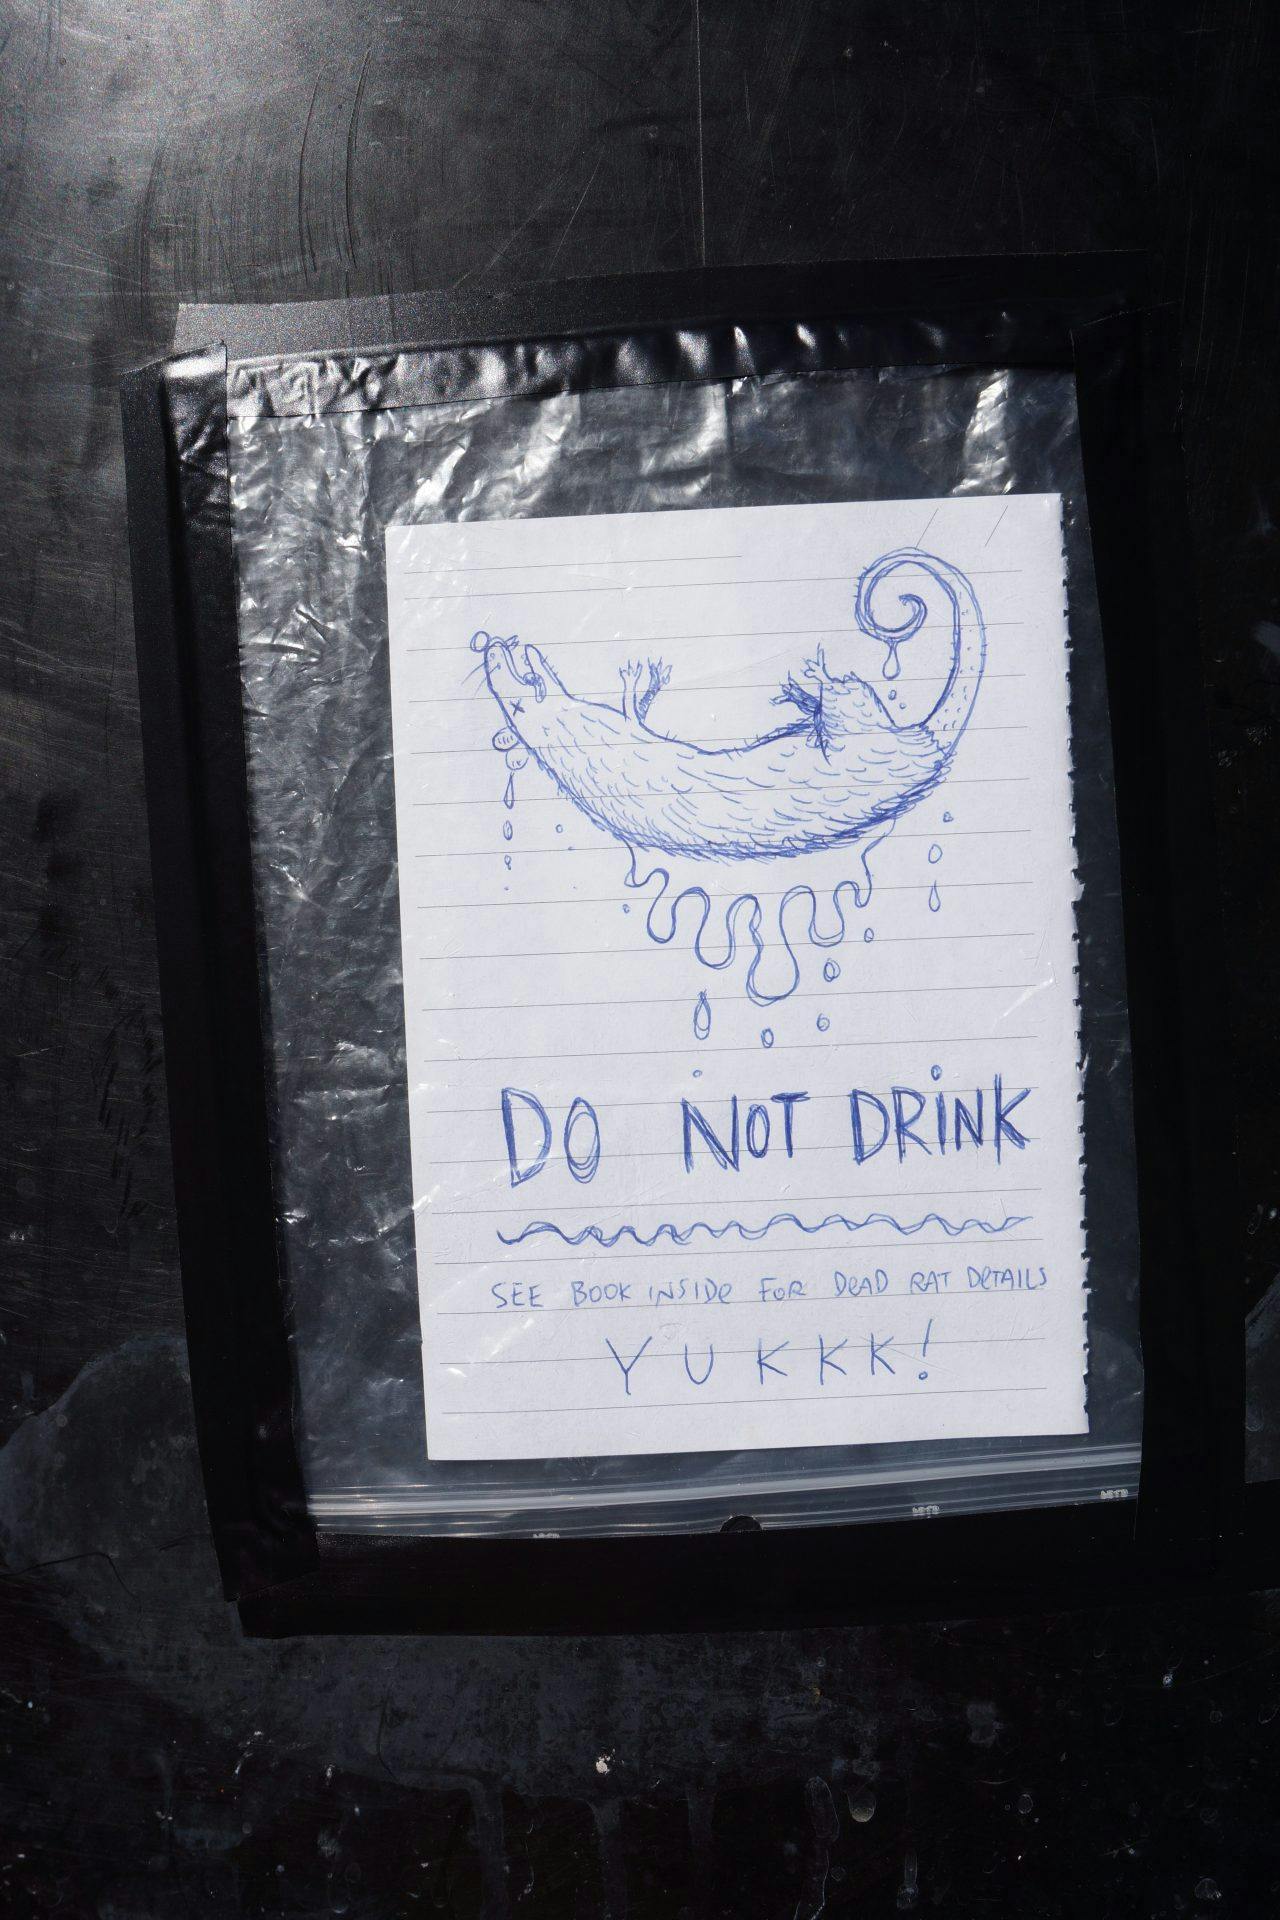 DO NOT DRINK
SEE BOOK INSIDE FOR DEAD RAT DETAILS
YUKKK!